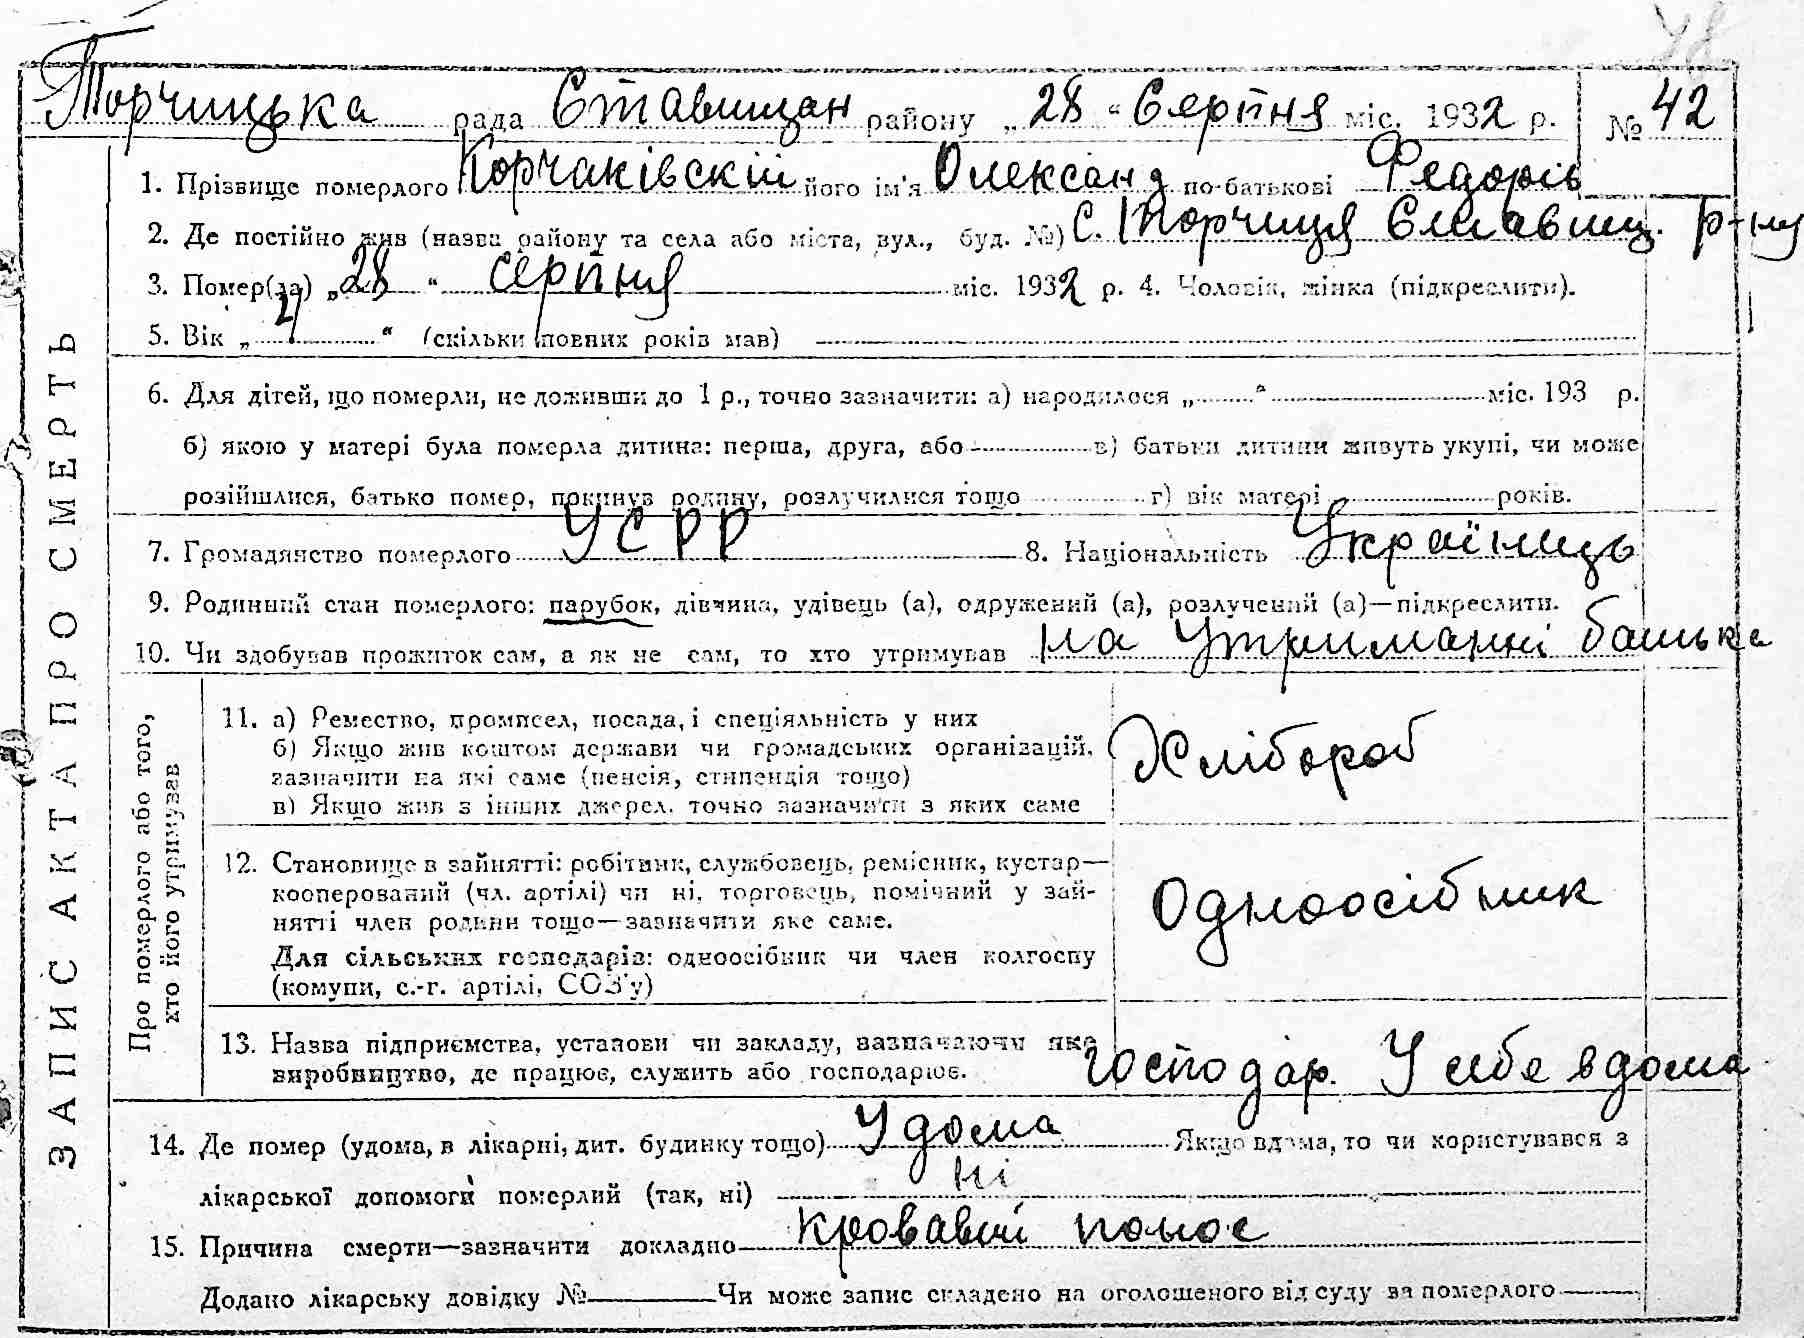 Торчицька рада Ставищан району „28“ Серпня міс. 1932 р. № 42
ЗАПИС АКТА ПРО СМЕРТЬ
1. Прізвище померлого Корчаківскій його ім'я Олександ по-батькові Федорів
2. Де постійно жив (назва району та села або міста, вул., буд. №) С. Торчиця Ставищ. р-ну
3. Помер(ла) „28“ серпня міс. 1932 р. 4. Чоловік, жінка (підкреслити).
5. Вік „ “ (скільки повних років мав)
6. Для дітей, що померли, не доживши до 1 р., точно зазначити: а) народилося „ “ міс. 193 р.
б) якою у матері була померла дитина: перша, друга, або в) батьки дитини живуть укупі, чи може
розійшлися, батько помер, покинув родину, розлучилися тощо г) вік матері років.
7. Громадянство померлого УСРР 8. Національність Українець
9. Родинний стан померлого: парубок, дівчина, удівець (а), одружений (а), розлучений (а)—підкреслити.
10. Чи здобував прожиток сам, а як не сам, то хто утримував на утриманні батька
Про померлого або того,
хто його утримував
11. а) Ремество, промисел, посада, і спеціяльність у них
б) Якщо жив коштом держави чи громадських організацій,
зазначити на які саме (пенсія, стипендія тощо)
в) Якщо жив з інших джерел, точно зазначити з яких саме
Хлібороб
12. Становище в зайнятті: робітник, службовець, ремісник, кустар—
кооперований (чл. артілі) чи ні, торговець, помічний у зай-
нятті член родини тощо—зазначити яке саме.
Для сільських господарів: одноосібник чи член колгоспу
(комуни, с.-г. артілі, СОЗ'у)
Одноосібник
13. Назва підприємства, установи чи закладу, зазначаючи яке
виробництво, де працює, служить або господарює.
господар. У себе вдома
14. Де помер (удома, в лікарні, дит. будинку тощо) Удома Якщо вдома, то чи користувався з
лікарської допомоги померлий (так, ні) ні
15. Причина смерти—зазначити докладно кровавий понос
Додано лікарську довідку № Чи може запис складено на оголошеного від суду за померлого